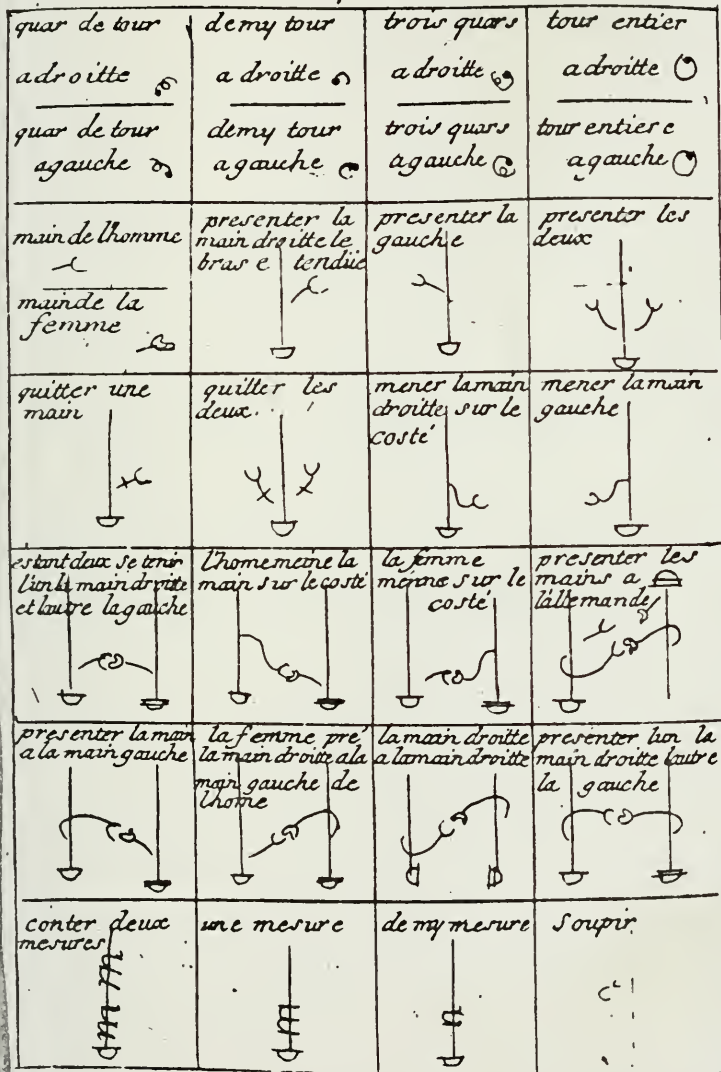 quar de tour
a droitte
demy tour
a droitte
trois quars
a droitte
tour entier
a droitte
quar de tour
a gauche
demy tour
a gauche
trois quars
a gauche
tour entiere
a gauche
main de l'homme
main de la
femme
presenter la
main droitte le
bras e tendüe
presenter la
gauche
presenter les
deux
quitter une
main
quitter les
deux
mener la main
droitte sur le
costé
mener la main
gauche
estant deux se tenir
l'un la main droitte
et lautre la gauche
l'home meine la
main sur le costé
la femme
meine sur le
costé
presenter les
mains a
l'allemande
presenter la main
a la main gauche
la femme pre'
la main droitte a la
main gauche de
lhome
la main droitte
a la main droitte
presenter lun la
main droitte lautre
la gauche
conter deux
mesures
une mesure
demy mesure
soupir